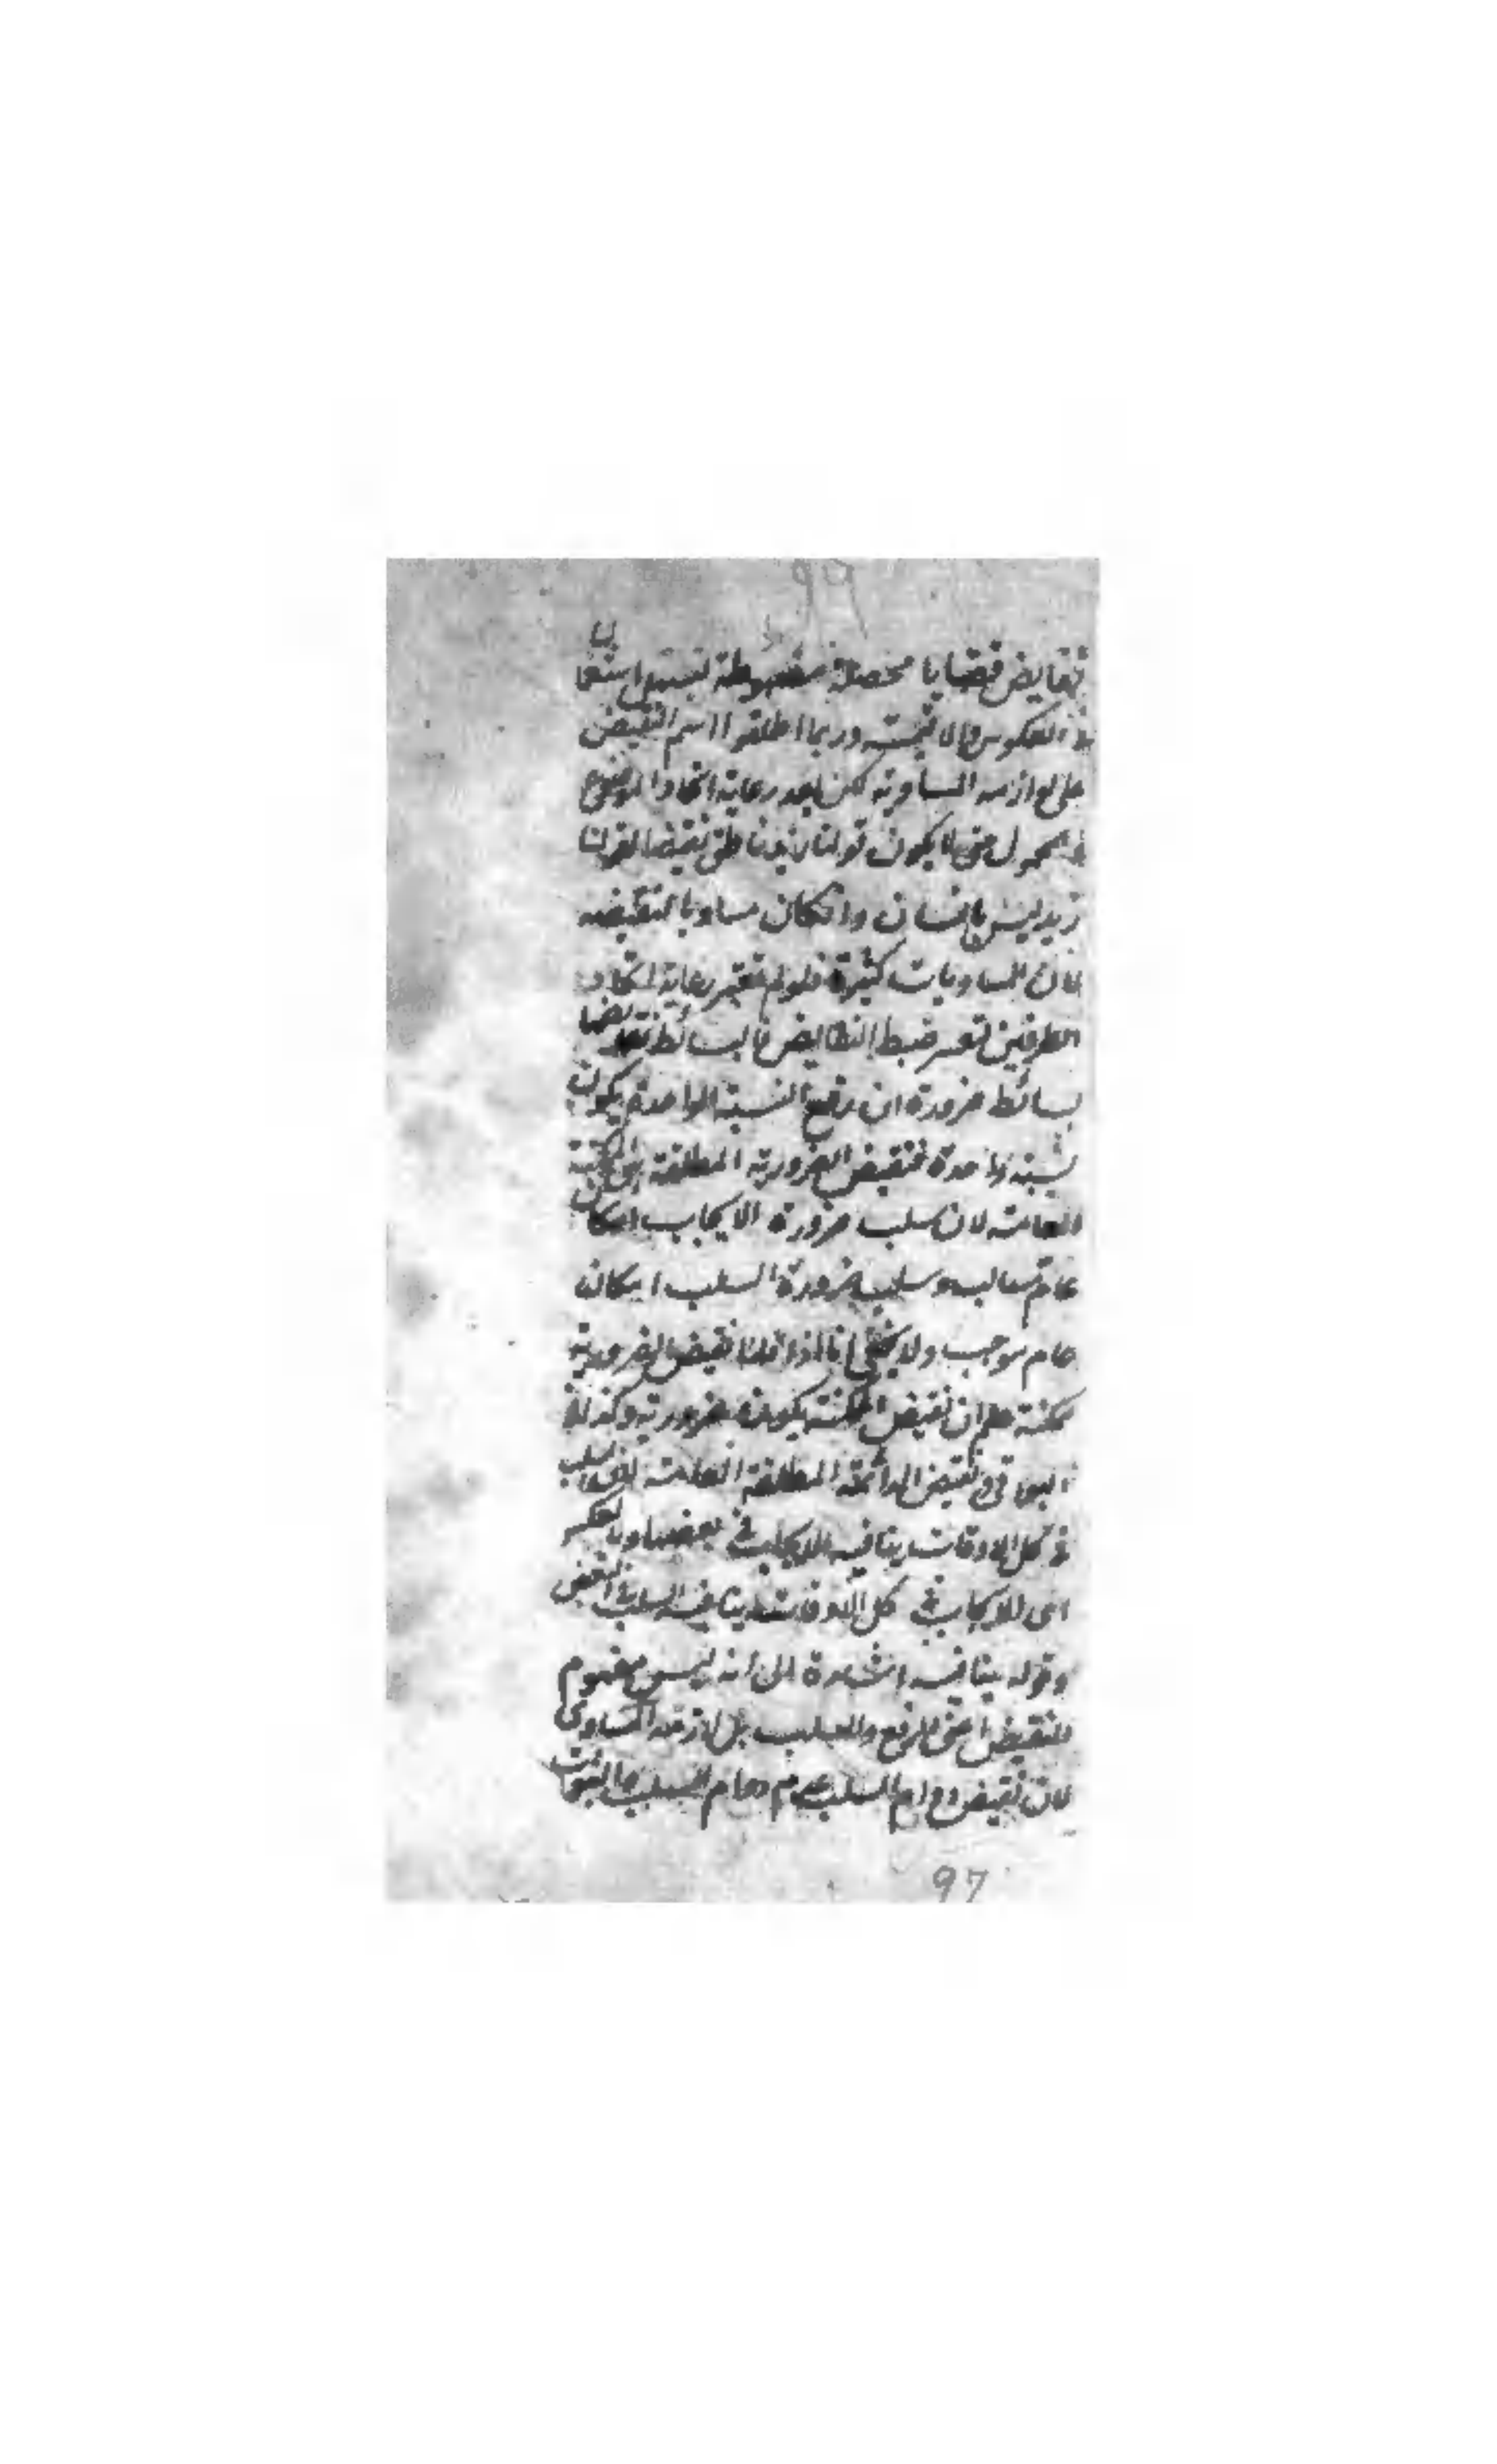 99
نقايض قضايا محصلة مضبوطة ليسهل استعمالها
في العكوس والاقيسة وربما اطلقوا اسم النقيض
على لوازمه المساوية لكن بعد رعاية اتحاد الموضوع
والمحمول حتى لا يكون قولنا زيد ناطق نقيضا لقولنا
زيد ليس بانسان وان كان مساويا لنقيضه
فان المساويات كثيرة فلو لم تعتبر رعاية اتحاد
الطرفين تعسر ضبط النقايض فالبسائط نقايضها
بسائط ضرورة ان رفع النسبة الواحدة يكون
نسبة واحدة فنقيض الضرورية المطلقة الممكنة
العامة لان سلب ضرورة الايجاب امكان
عام سالب وسلب ضرورة السلب امكان
عام موجب ولا يخفى انا اذا قلنا نقيض الضرورية
ممكنة علم ان نقيض الممكنة يكون ضرورية وكذا في
البواقي ونقيض الدائمة المطلقة العامة لان السلب
في كل الاوقات ينافيه الايجاب في بعضها وبالعكس
اى الايجاب في كل الاوقات ينافيه السلب في البعض
وقوله ينافيه اشارة الى انه ليس مفهوم
النقيض اعنى الرفع والسلب بل لازمه المساوى
لان نقيض دوام السلب عدم دوام السلب
97